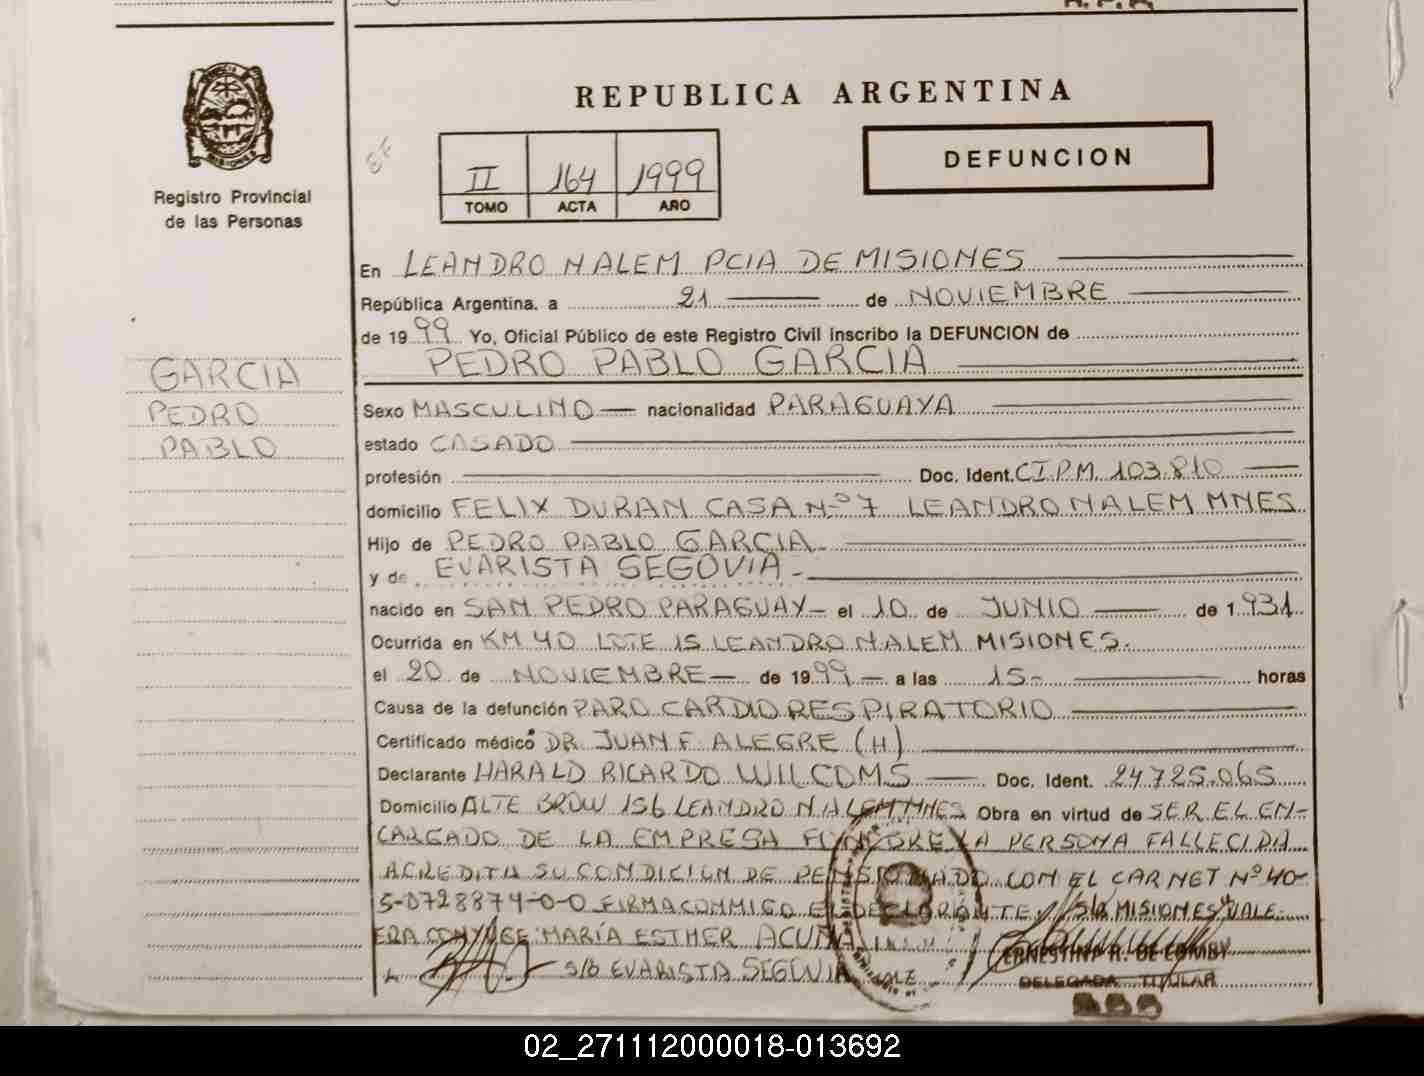 REPUBLICA ARGENTINA
PROVINCIA DE MISIONES
Registro Provincial
de las Personas
II 164 1999
TOMO ACTA AÑO
DEFUNCION
GARCIA
PEDRO
PABLO
En LEANDRO N ALEM PCIA DE MISIONES
República Argentina. a 21 de NOVIEMBRE
de 1999 Yo, Oficial Público de este Registro Civil inscribo la DEFUNCION de
PEDRO PABLO GARCIA
Sexo MASCULINO nacionalidad PARAGUAYA
estado CASADO
profesión Doc. Ident. C.I.P.M. 103.810
domicilio FELIX DURAN CASA Nº 7 LEANDRO N ALEM MNES
Hijo de PEDRO PABLO GARCIA
y de EVARISTA SEGOVIA -
nacido en SAN PEDRO PARAGUAY - el 10 de JUNIO de 1931
Ocurrida en KM 40 LOTE 15 LEANDRO N ALEM MISIONES.
el 20 de NOVIEMBRE de 1999 a las 15- horas
Causa de la defunción PARO CARDIO RESPIRATORIO
Certificado médico DR. JUAN F. ALEGRE (H)
Declarante HARALD RICARDO WILCOMS Doc. Ident. 24.725.065
Domicilio ALTE BROW 156 LEANDRO N ALEM MNES Obra en virtud de SER EL EN-
CARGADO DE LA EMPRESA FUNEBRE LA PERSONA FALLECIDA
ACREDITA SU CONDICION DE PENSIONADO CON EL CARNET Nº 40-
5-0728874-0-0 FIRMA CONMIGO EL DECLARANTE, S/B MISIONES VALE
ERA CONYUGE: MARÍA ESTHER ACUÑA
S/B EVARISTA SEGOVIA VALE
ERNESTINA R. DE LOMBY
DELEGADA TITULAR
02_271112000018-013692